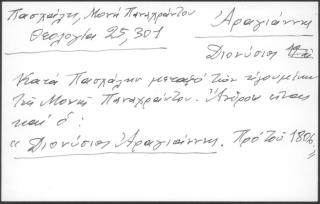 Πασχάλης, Μονή Παναχράντου
Θεολογία 25, 301
Ἀραγιάννης
Διονύσιος
Κατά Πασχάλην μεταξύ τῶν ἡγουμένων
τῆς Μονῆς Παναχράντου Ἄνδρου εἶναι
καί ὁ:
"Διονύσιος Ἀραγιάννης. Πρό τοῦ 1806"